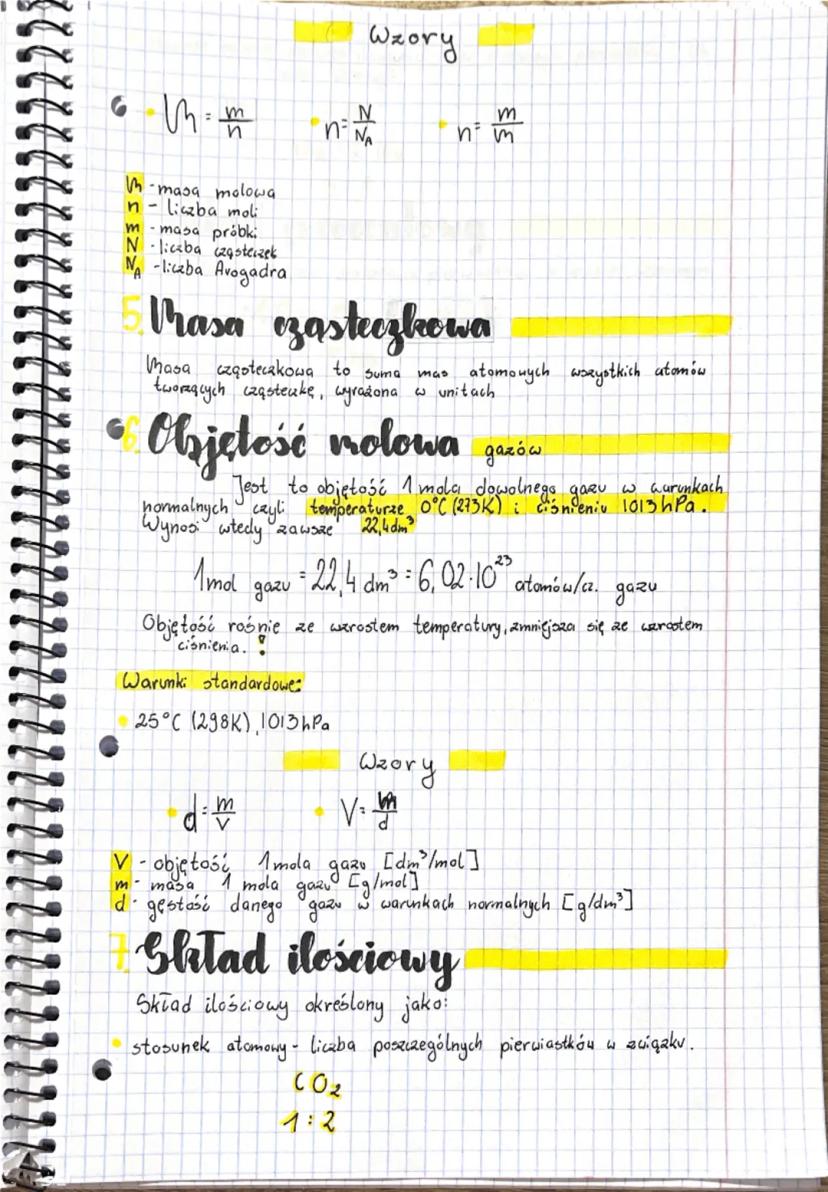 Wzory
M = m/n n = N/NA n = m/M
M - masa molowa
n - liczba moli
m - masa próbki
N - liczba cząsteczek
NA - liczba Avogadra
5. Masa cząsteczkowa
Masa cząsteczkowa to suma mas atomowych wszystkich atomów
tworzących cząsteczkę, wyrażona w unitach
6. Objętość molowa gazów
Jest to objętość 1 mola dowolnego gazu w warunkach
normalnych czyli temperaturze 0°C (273K) i ciśnieniu 1013 hPa.
Wynosi wtedy zawsze 22,4 dm³
1 mol gazu = 22,4 dm³ = 6,02·10²³ atomów/cz. gazu
Objętość rośnie ze wzrostem temperatury, zmniejsza się ze wzrostem
ciśnienia. !
Warunki standardowe:
• 25°C (298K), 1013 hPa
Wzory
• d = m/V • V = M/d
V - objętość 1 mola gazu [dm³/mol]
m - masa 1 mola gazu [g/mol]
d - gęstość danego gazu w warunkach normalnych [g/dm³]
7. Skład ilościowy
Skład ilościowy określony jako:
• stosunek atomowy - liczba poszczególnych pierwiastków w związku.
CO₂
1 : 2